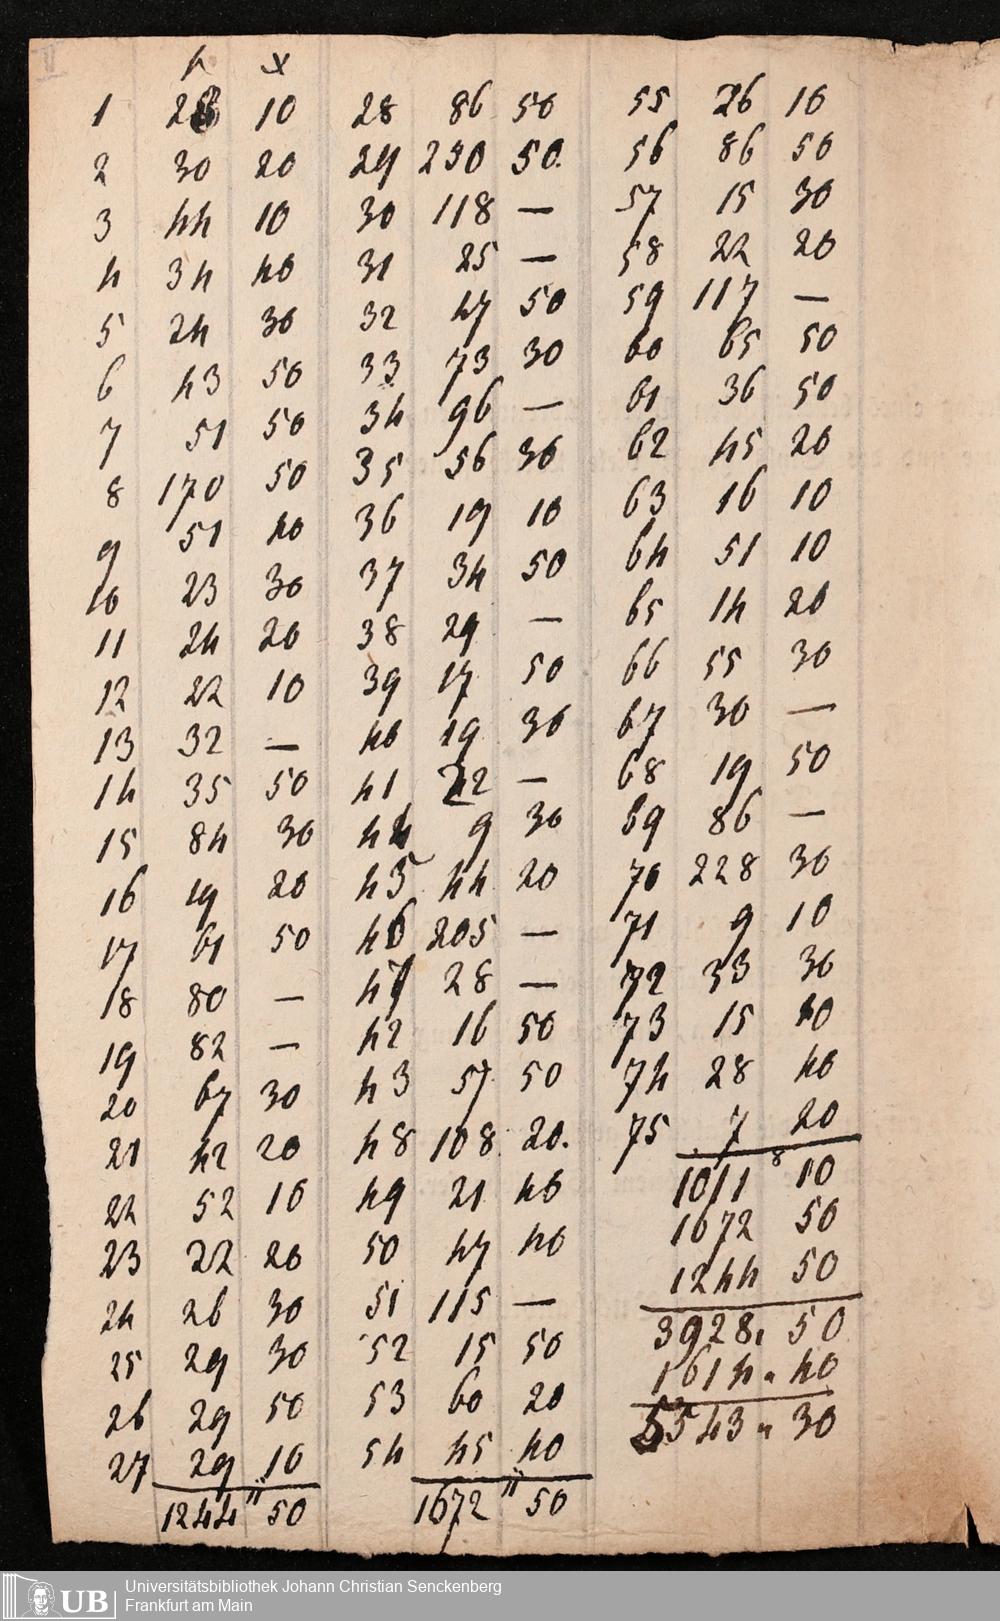 f x
1 28 10
2 30 20
3 44 10
4 34 40
5 24 30
6 43 50
7 51 50
8 170 50
9 51 40
10 23 30
11 24 20
12 22 10
13 32 —
14 35 50
15 84 30
16 19 20
17 61 50
18 80 —
19 82 —
20 67 30
21 42 20
22 52 10
23 22 20
24 26 30
25 29 30
26 29 50
27 29 10
1244 " 50
28 86 50
29 230 50.
30 118 —
31 25 —
32 47 50
33 73 30
34 96 —
35 56 30
36 19 10
37 34 50
38 29 —
39 17 50
40 19 30
41 42 —
44 9 30
45 44 20
46 205 —
47 28 —
42 16 50
43 57 50
48 108 20.
49 21 40
50 47 40
51 115 —
52 15 50
53 60 20
54 45 40
1672 " 50
55 26 10
56 86 50
57 15 30
58 22 20
59 117 —
60 65 50
61 36 50
62 45 20
63 16 10
64 51 10
65 14 20
66 55 30
67 30 —
68 19 50
69 86 —
70 228 30
71 9 10
72 33 30
73 15 10
74 28 40
75 7 20
8
1011 10
1672 50
1244 50
3928 " 50
1614 " 40
5543 " 30
UB Universitätsbibliothek Johann Christian Senckenberg
Frankfurt am Main